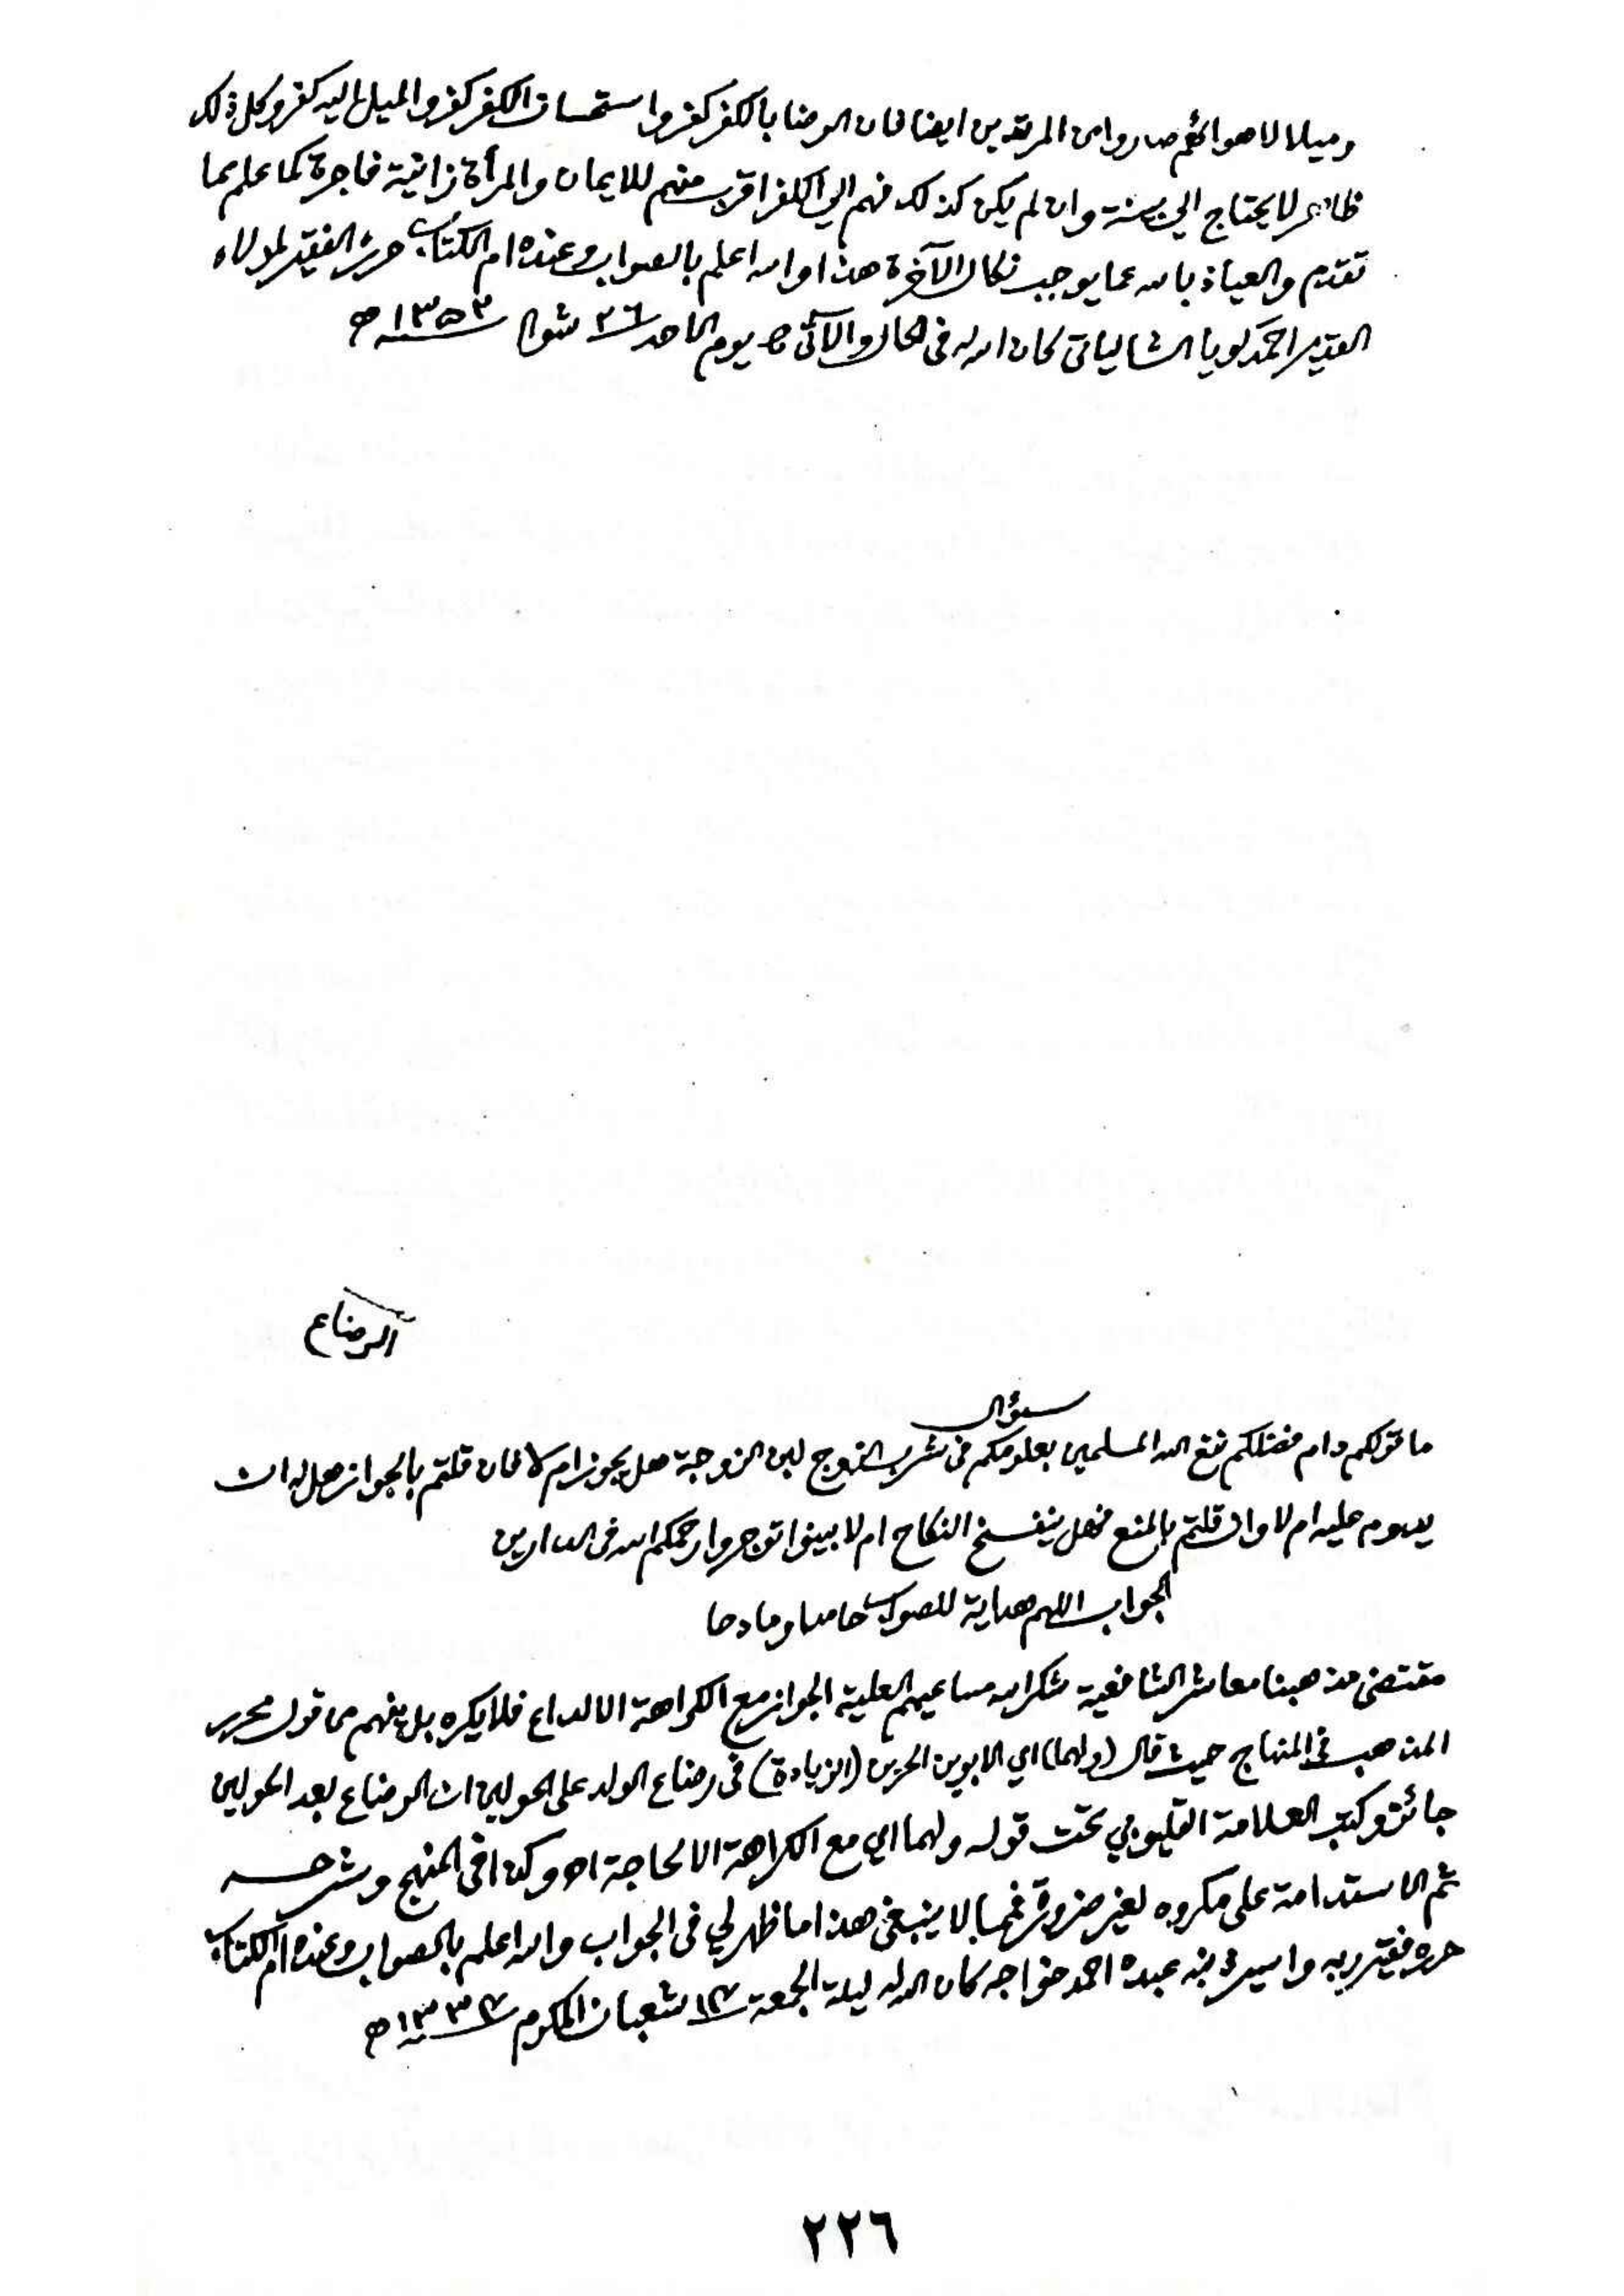 وميلا لاهوائهم صاروا من المرتدين ايضا فان الرضا بالكفر كفر واستحسان الكفر كفر والميل اليه كفر وكل ذلك
ظاهر لا يحتاج الى بينة وان لم يكن كذلك فهم الى الكفر اقرب منهم للايمان والمرأة زانية فاجرة كما علم مما
تقدم والعياذ بالله عما يوجب نكال الآخرة هذا والله اعلم بالصواب وعنده ام الكتاب حرره الفقير لمولاه
القدير احمد كويا الشالياتى كان الله له فى الحال والآتى يوم الاحد ٢٦ شوال ١٣٥٣ ھ
الرضاع
سؤال
ما قولكم دام فضلكم نفع الله المسلمين بعلومكم فى شرب الزوج لبن الزوجة هل يجوز ام لا فان قلتم بالجواز هل له ان
يدوم عليه ام لا وان قلتم بالمنع فهل ينفسخ النكاح ام لا بينوا توجروا رحمكم الله فى الدارين
الجواب اللهم هداية للصواب حامدا ومادحا
مقتضى مذهبنا معاشر الشافعية شكر الله مساعيهم العلية الجواز مع الكراهة الا لداع فلا يكره بل يفهم من قول محرر
المذهب فى المنهاج حيث قال (ولهما) اي الابوين الحرين (الزيادة) فى رضاع الولد على الحولين ان الرضاع بعد الحولين
جائز وكتب العلامة القليوبي تحت قوله ولهما اي مع الكراهة الا لحاجة اھ وكذا فى المنهج وشرحه
ثم الاستدامة على مكروه لغير ضرورة فمما لا ينبغى هذا ما ظهر لي فى الجواب والله اعلم بالصواب وعنده ام الكتاب
حرره فقير ربه واسير ذنبه عبده احمد خواجه كان الله له ليلة الجمعة ١٢ شعبان المكرم ھ
٢٢٦